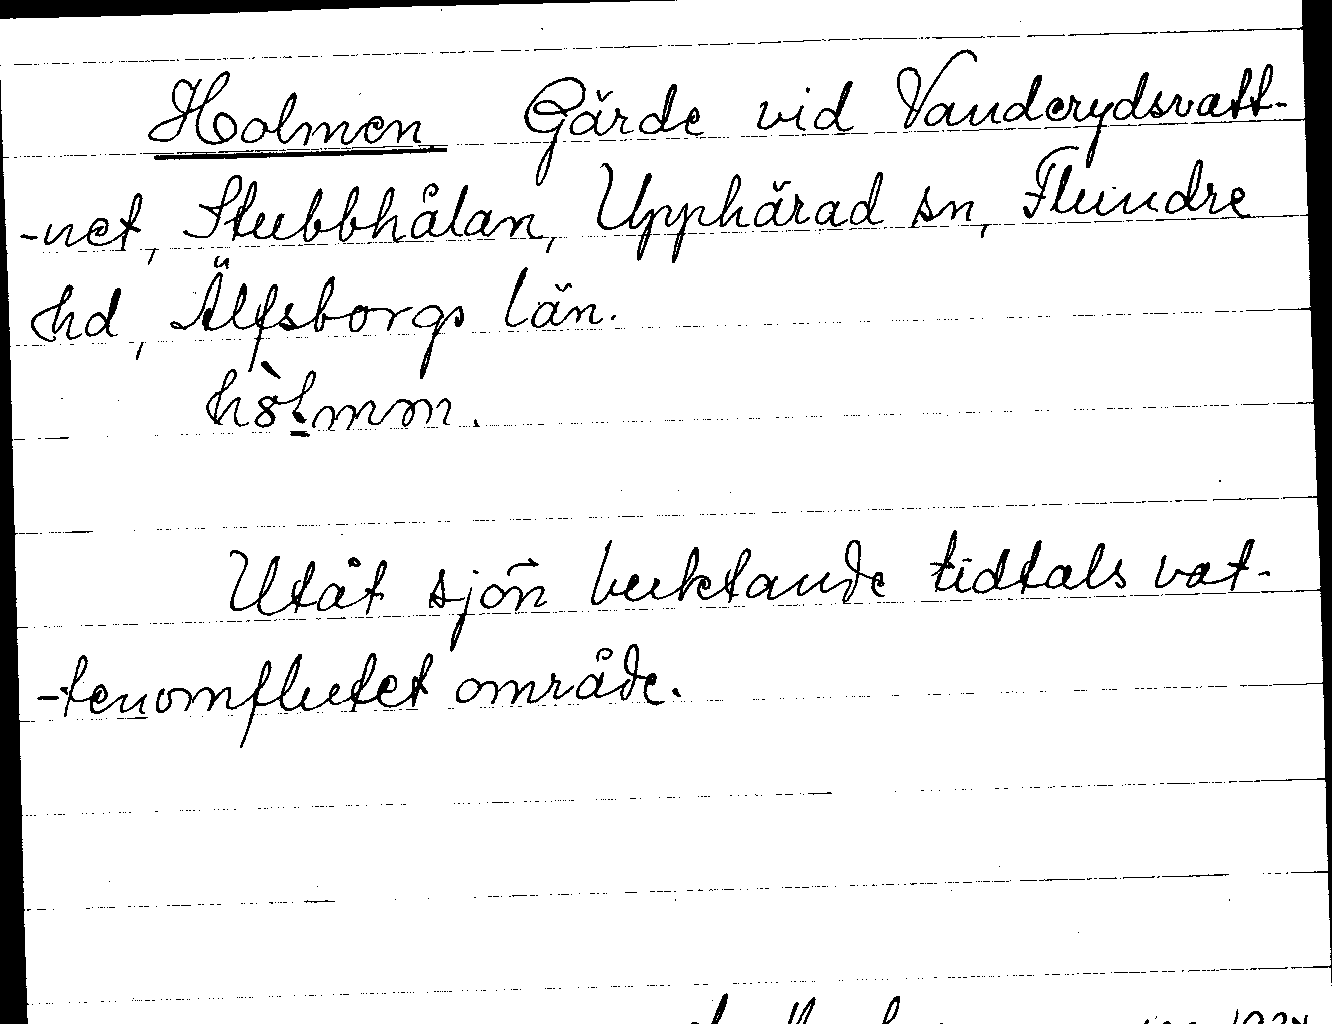 Holmen Gärde vid Vanderydsvatt-
-net, Stubbhålan, Upphärad sn, Flundre
hd, Älfsborgs län.
hòlmm.
Utåt sjön buktande tidtals vat-
-tenomflutet område.